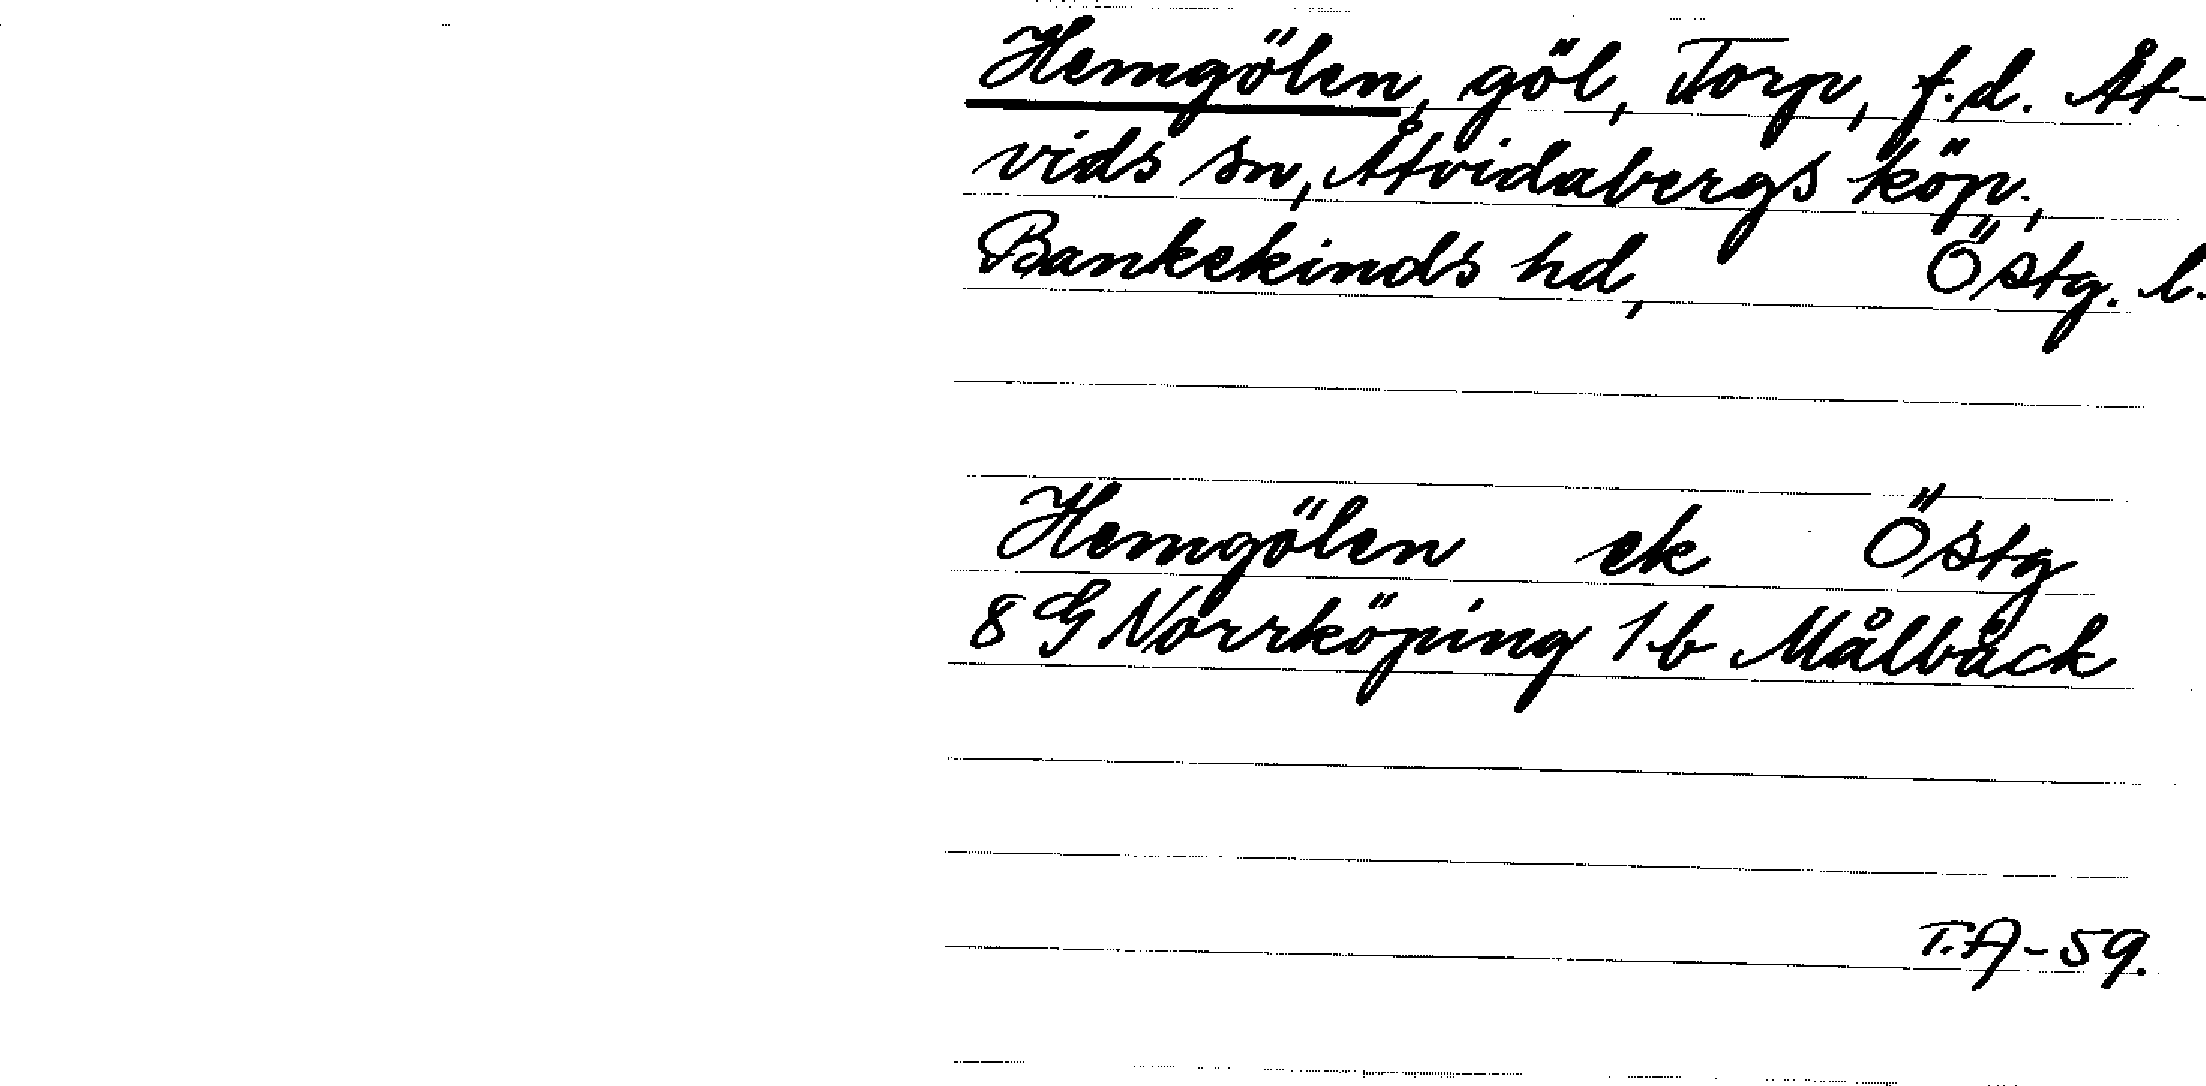 Hemgölen, göl, Torp, f.d. Åt-
vids sn, Åtvidabergs köp.,
Bankekinds hd, Östg. l.
Hemgölen ek Östg
8 G Norrköping 1 b Målbäck
T.A-59.